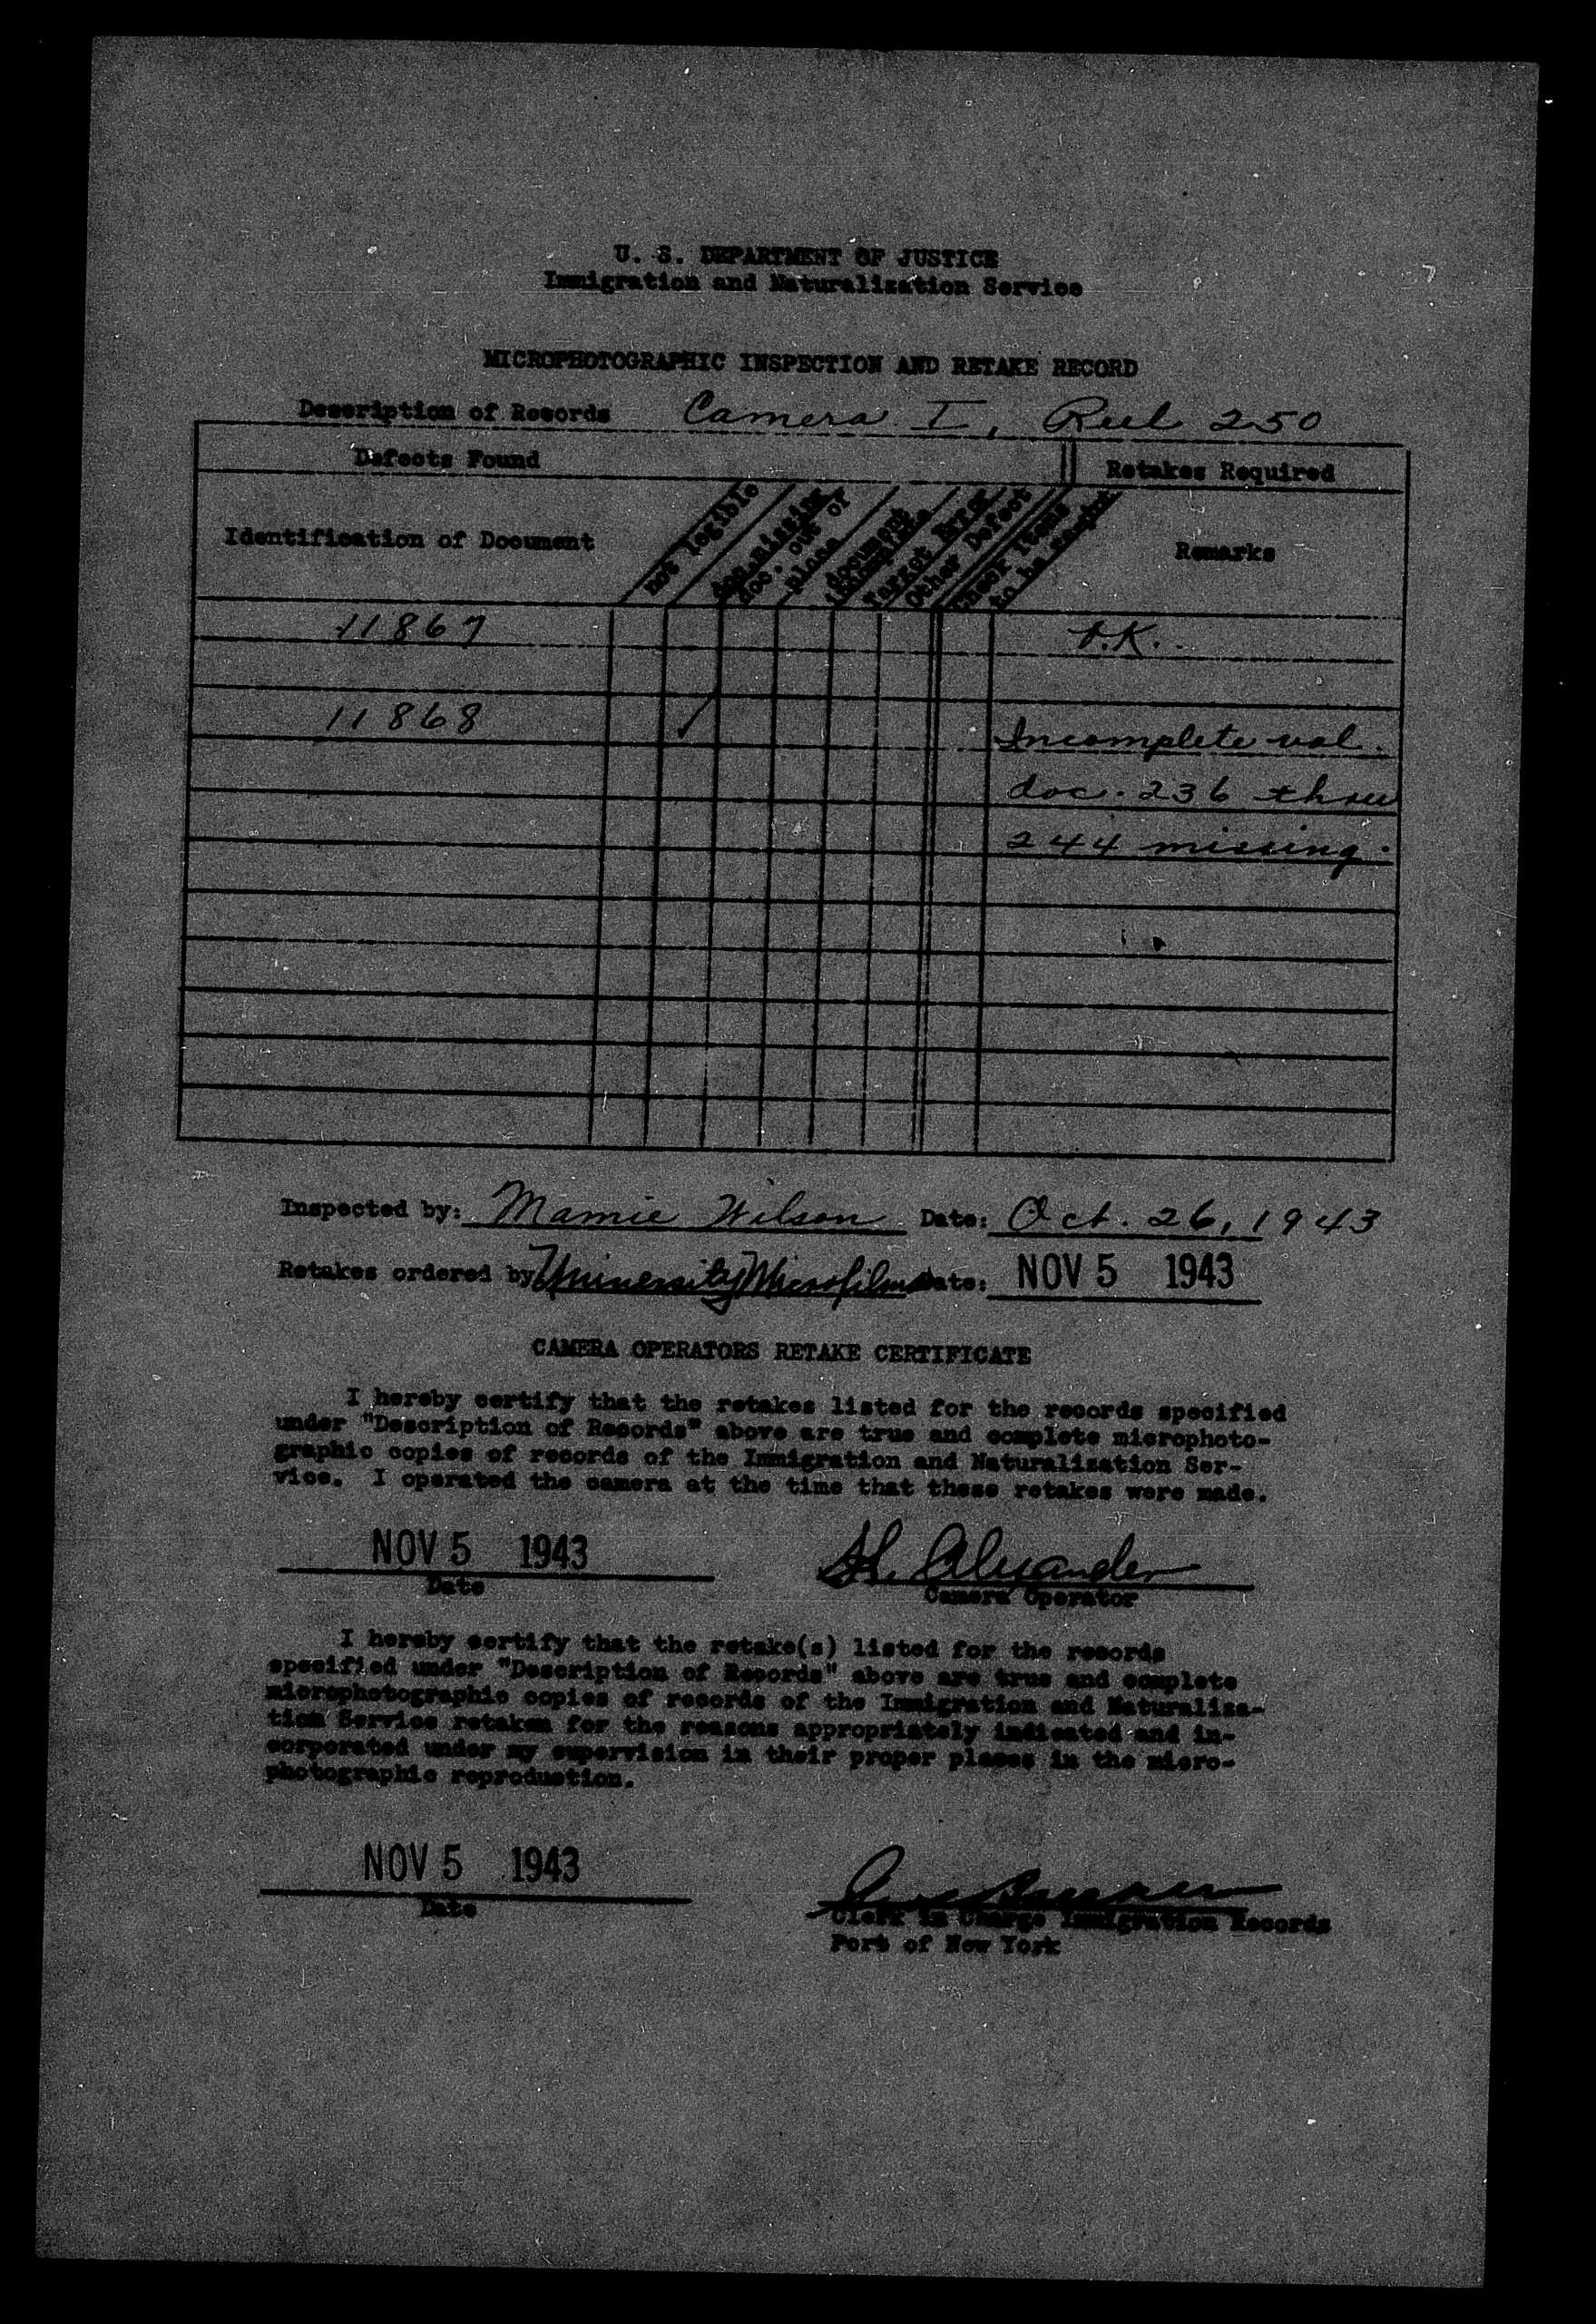 U. S. DEPARTMENT OF JUSTICE
Immigration and Naturalization Service
MICROPHOTOGRAPHIC INSPECTION AND RETAKE RECORD
Description of Records Camera I, Reel 250
Defects Found Retakes Required
Identification of Document not legible doc. missing doc. out of place document incomplete Target Error Other Defect Check items to be Remarks
11867 O.K.
11868 ✓ Incomplete vol.
doc. 236 thru
244 missing.
Inspected by: Mamie Wilson Date: Oct. 26, 1943
Retakes ordered by University Microfilms Date: NOV 5 1943
CAMERA OPERATORS RETAKE CERTIFICATE
I hereby certify that the retakes listed for the records specified
under "Description of Records" above are true and complete microphoto-
graphic copies of records of the Immigration and Naturalization Ser-
vice. I operated the camera at the time that these retakes were made.
NOV 5 1943 Alexander
Date Camera Operator
I hereby certify that the retake(s) listed for the records
specified under "Description of Records" above are true and complete
microphotographic copies of records of the Immigration and Naturaliza-
tion Service retaken for the reasons appropriately indicated and in-
corporated under my supervision in their proper places in the micro-
photographic reproduction.
NOV 5 1943
Date Clerk in Charge Immigration Records
Port of New York